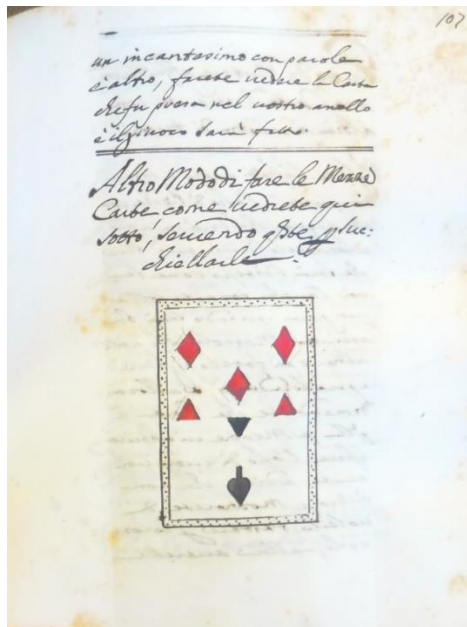 107
un incantasimo con parole
è altro, farete vedere la Carta
che fu presa nel vostro anello
è il giuoco sarà fatto.
Altro Modo di fare le Mezze
Carte come vedrete qui
sotto, servendo